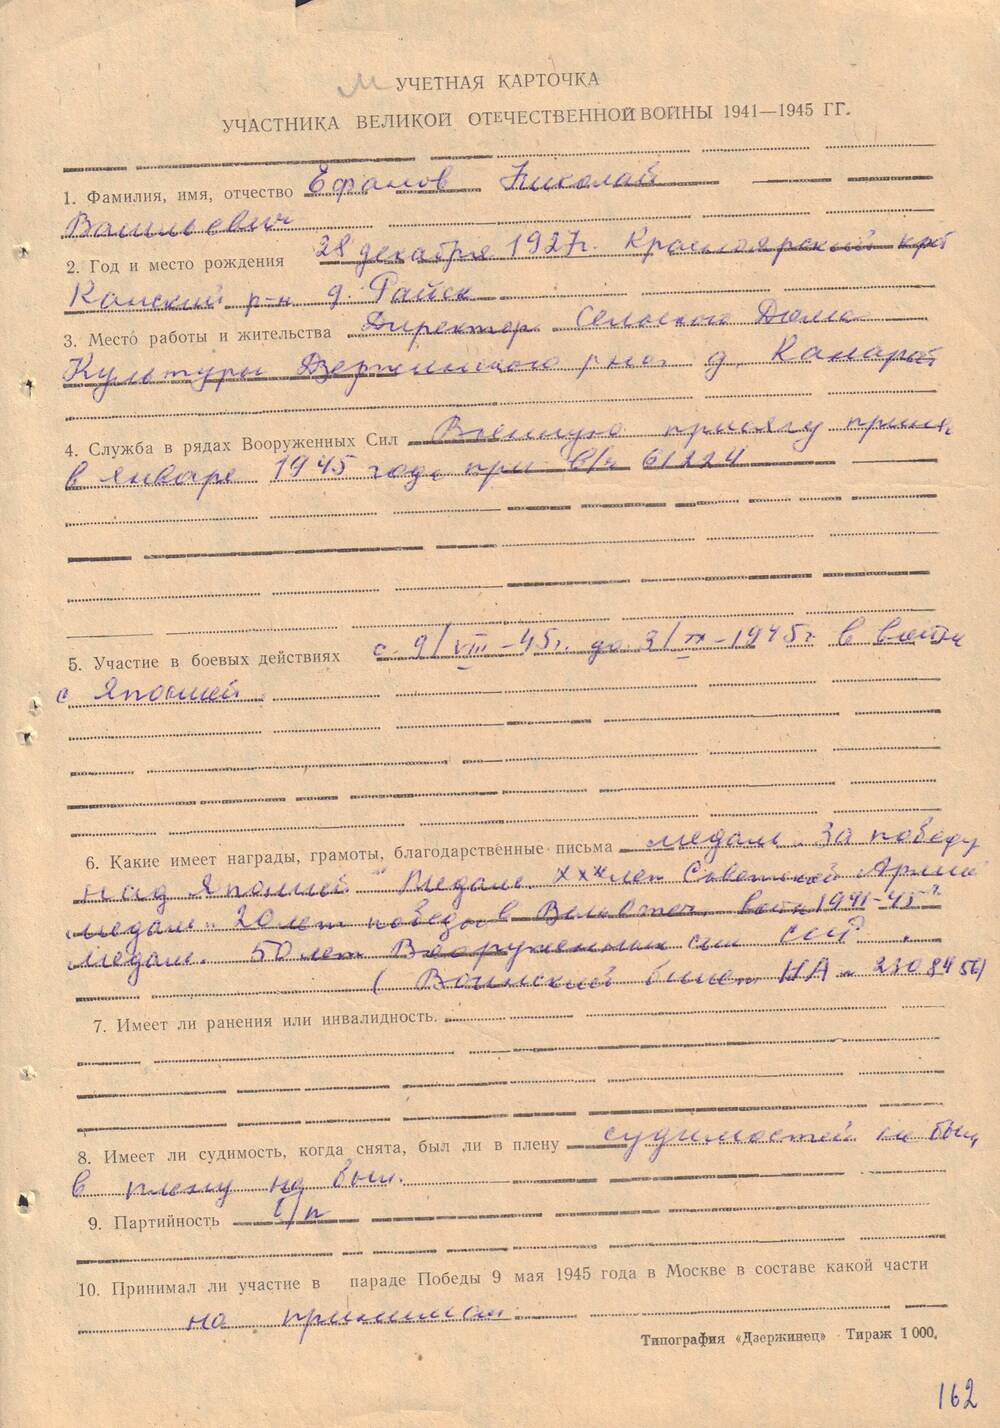 УЧЕТНАЯ КАРТОЧКА
УЧАСТНИКА ВЕЛИКОЙ ОТЕЧЕСТВЕННОЙ ВОЙНЫ 1941—1945 ГГ.
1. Фамилия, имя, отчество Ефанов Николай
Васильевич
2. Год и место рождения 28 декабря 1927г. Красноярский край
Канский р-н д. Райск
3. Место работы и жительства Директор Сельского Дома
Культуры Дзержинского р-на д.
4. Служба в рядах Вооруженных Сил Военную присягу принял
в январе 1945 год. при в/ч 61224
5. Участие в боевых действиях с 9/VIII-45г. до 3/IX-1945г. в войне
с Японией
6. Какие имеет награды, грамоты, благодарственные письма медаль „За победу
над Японией" Медаль XXX лет Советской Армии
медаль „20 лет победы в Вел. Отеч. войне 1941-45"
Медаль. 50 лет Вооруженных сил СССР.
(Воинский билет НА № 2308456)
7. Имеет ли ранения или инвалидность.
8. Имеет ли судимость, когда снята, был ли в плену судимостей не был
в плену не был.
9. Партийность б/п
10. Принимал ли участие в параде Победы 9 мая 1945 года в Москве в составе какой части
не принимал
Типография «Дзержинец» Тираж 1 000.
162